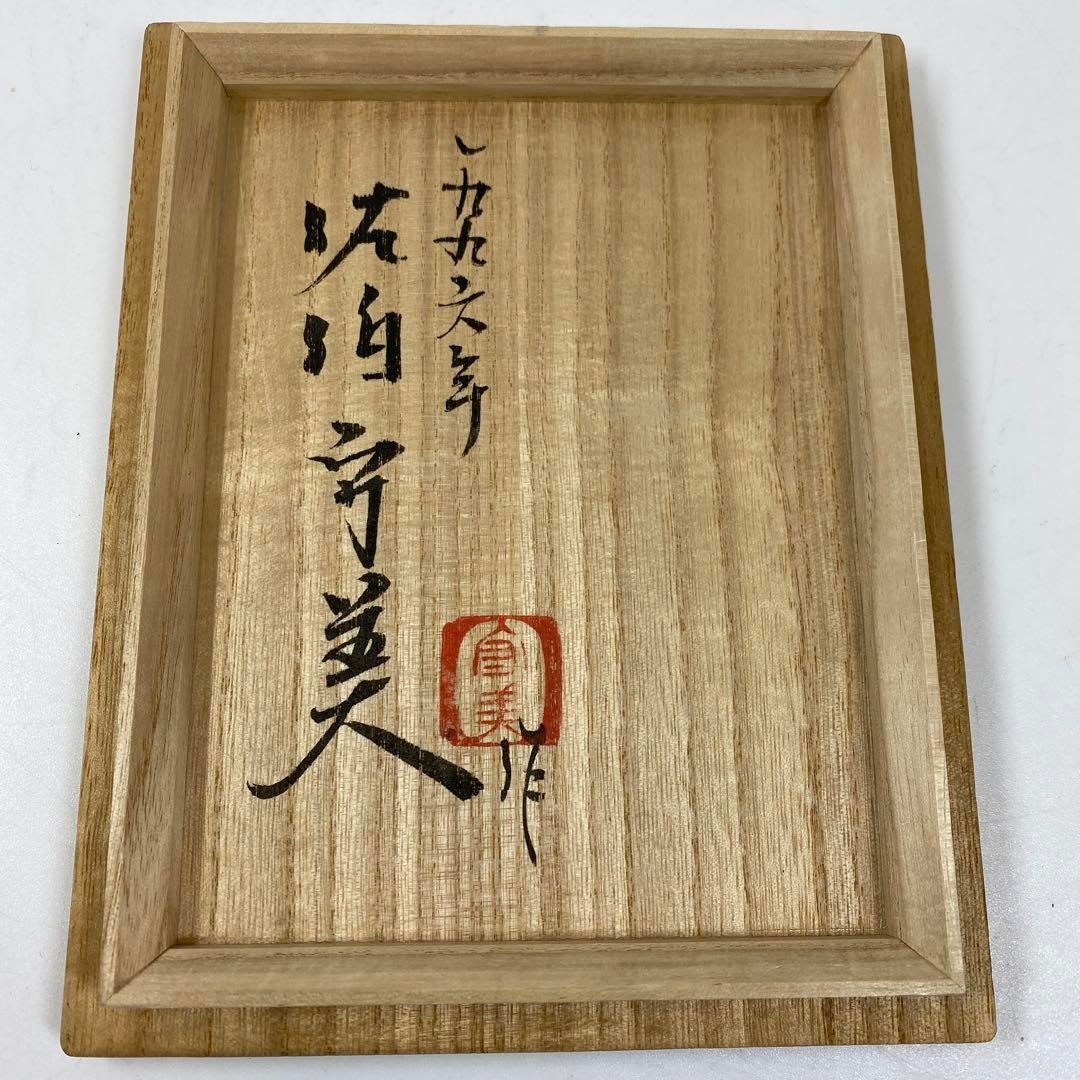 一九九六年
佐伯守美
作
守美